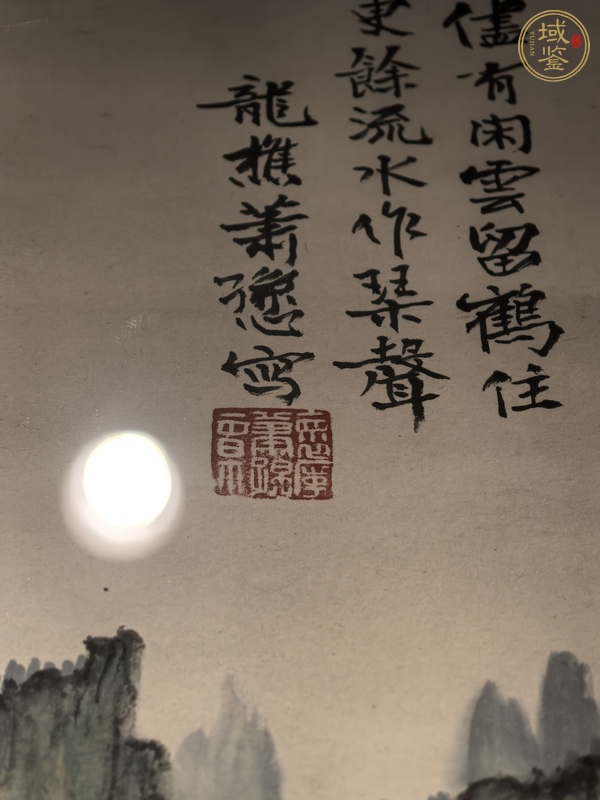 儘有閑雲留鶴住
更餘流水作琴聲
龍樵蕭愻寫
域鉴
YUJIAN